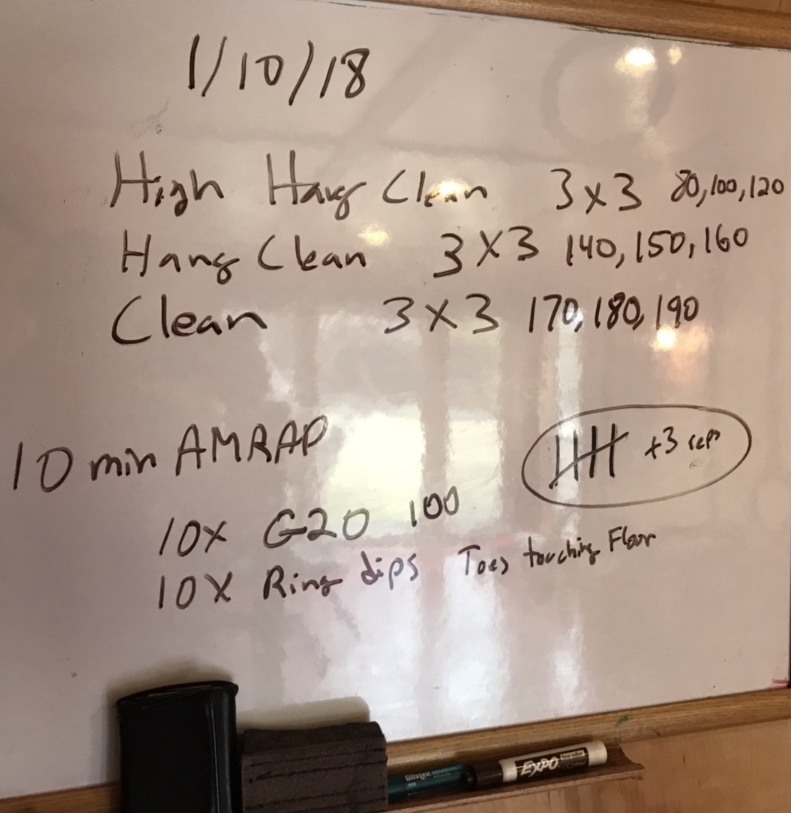 1/10/18
High Hang Clean 3x3 80,100,120
Hang Clean 3x3 140,150,160
Clean 3x3 170,180,190
10 min AMRAP
+3 reps
10x G20 100
10x Ring dips Toes touching Floor
EXPO